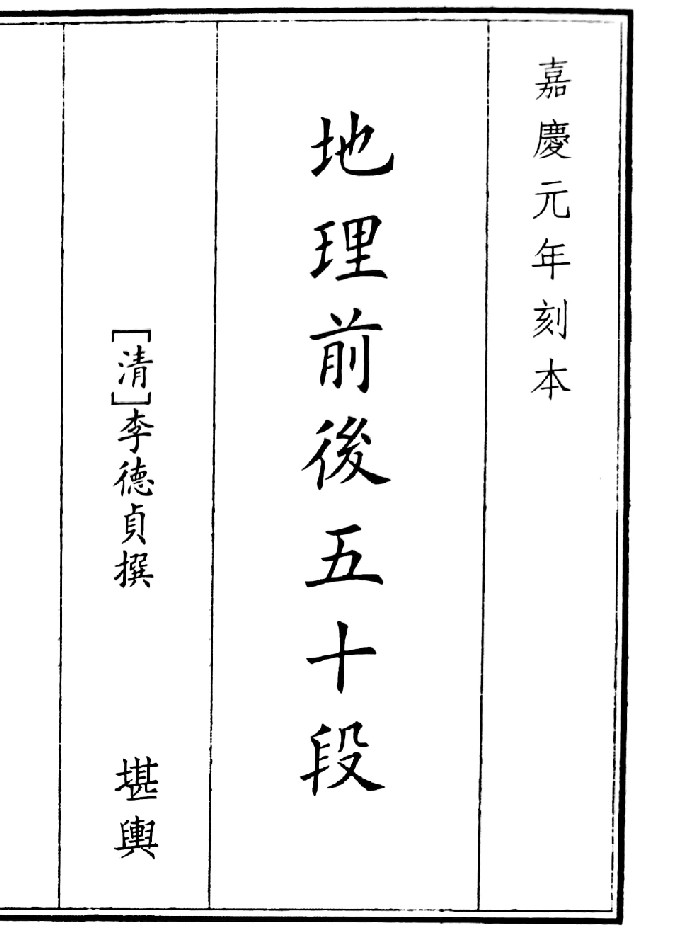 嘉慶元年刻本
地理前後五十段
[清]李德貞撰
堪輿